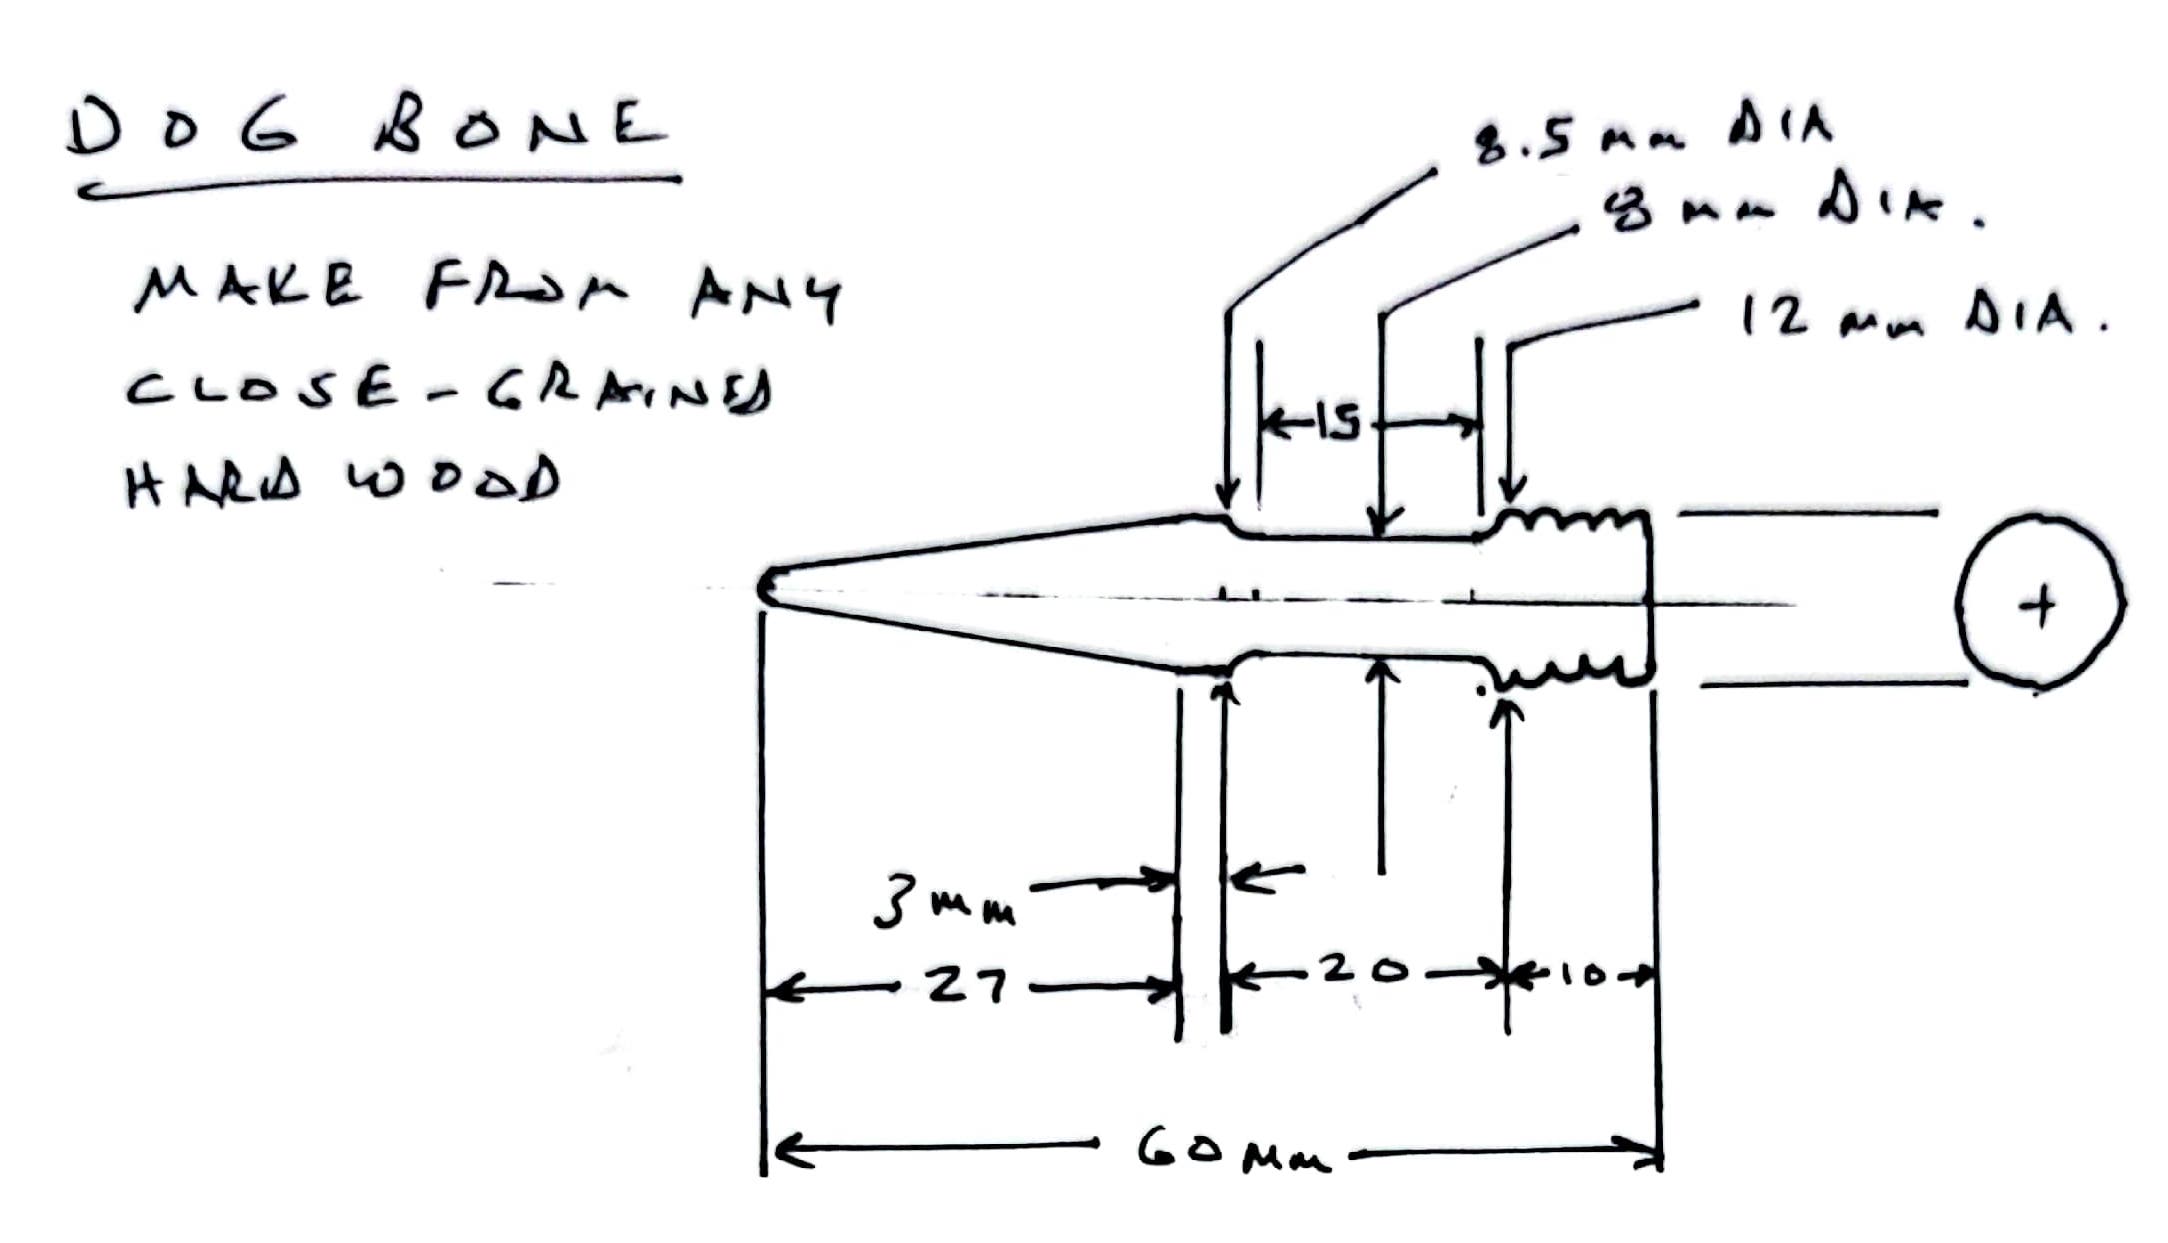 DOG BONE
MAKE FROM ANY
CLOSE-GRAINED
HARD WOOD
8.5 mm DIA
8 mm DIA.
12 mm DIA.
15
3 mm
27
20
10
60 mm